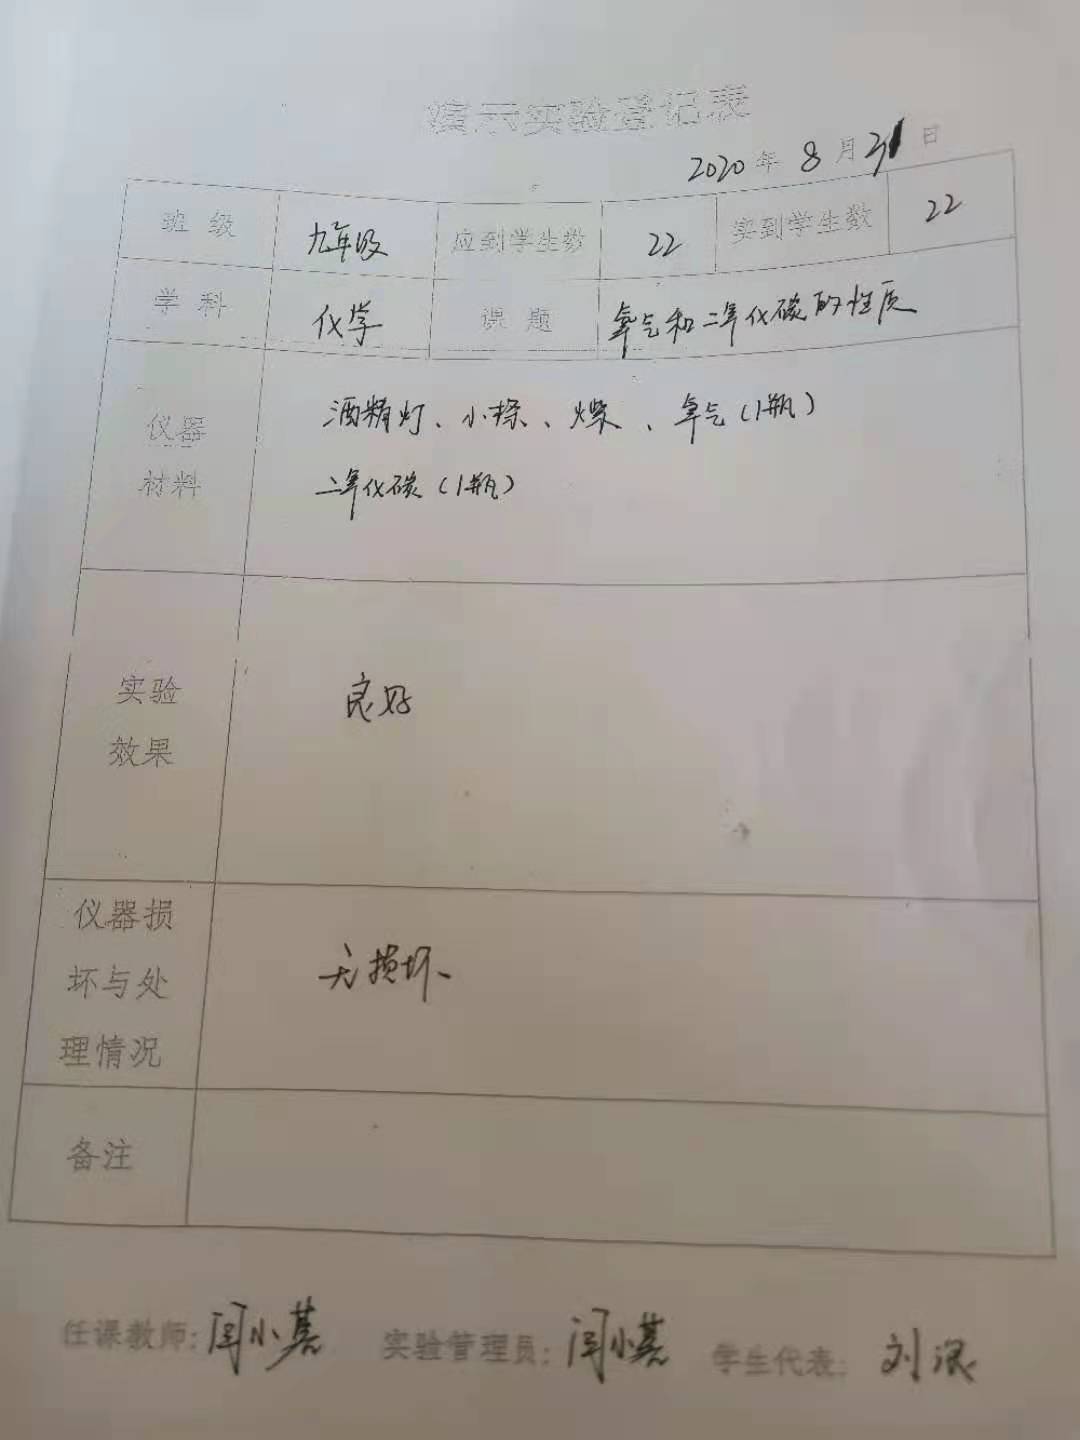 演示实验登记表
2020年 8月31日
班级 九年级 应到学生数 22 实到学生数 22
学科 化学 课题 氧气和二氧化碳的性质
仪器材料 酒精灯、小木条、火柴、氧气(1瓶)
二氧化碳(1瓶)
实验效果 良好
仪器损坏与处理情况 无损坏、
备注
任课教师: 闫小 实验管理员: 闫小 学生代表: 刘